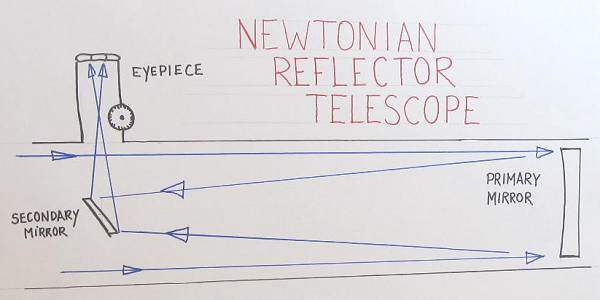 NEWTONIAN
REFLECTOR
TELESCOPE
EYEPIECE
PRIMARY
MIRROR
SECONDARY
MIRROR